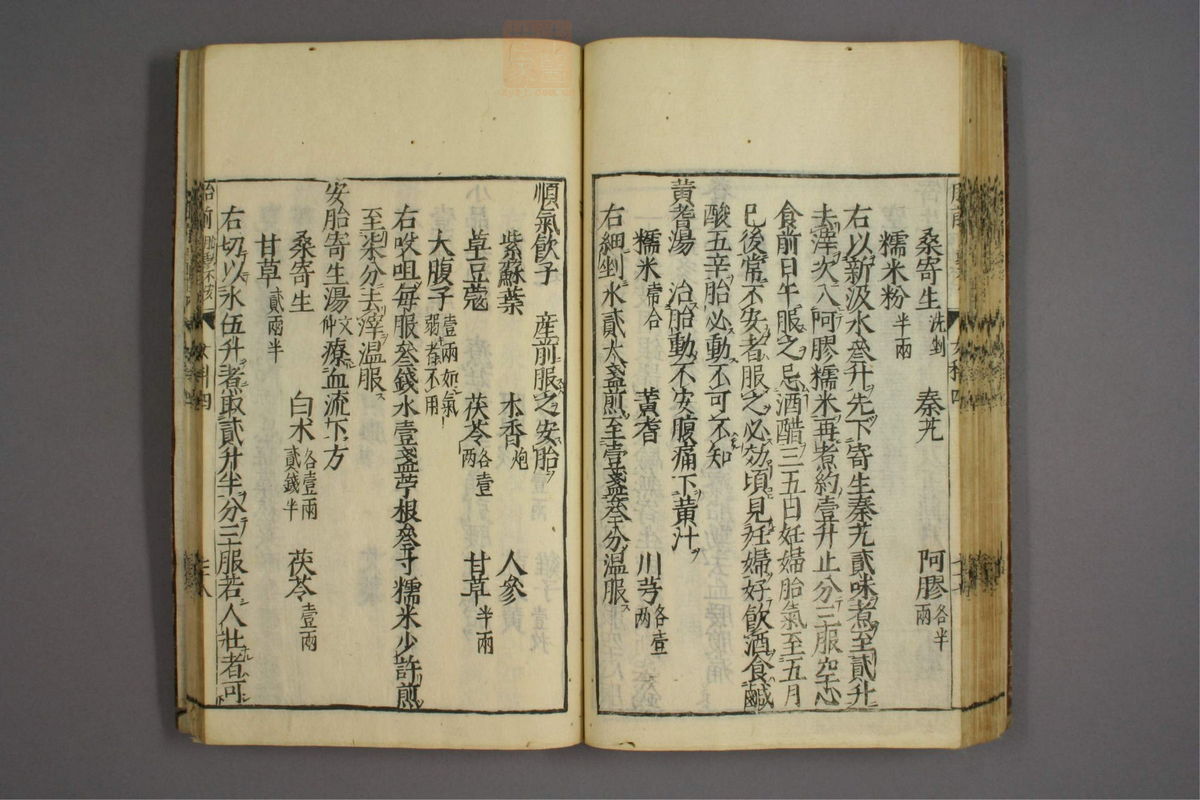 桑寄生洗剉　秦艽　阿膠各半兩
糯米粉半兩
右以新汲水叄升先下寄生秦艽貳味煮至貳升
去滓次入阿膠糯米再煮約壹升止分三服空心
食前日午服之忌酒醋三五日妊婦胎氣至五月
已後常不安者服之必効頃見妊婦好飲酒食鹹
酸五辛胎必動不可不知
黃耆湯　治胎動不安腹痛下黃汁
糯米壹合　黃耆　川芎各壹兩
右細剉水貳大盞煎至壹盞叄分溫服
順氣飲子　產前服之安胎
紫蘇葉　木香炮　人參
草豆蔻　茯苓各壹兩　甘草半兩
大腹子壹兩如氣弱者不用
右㕮咀每服叄錢水壹盞苧根叄寸糯米少許煎
至柒分去滓溫服
安胎寄生湯文仲療血流下方
桑寄生　白朮各壹兩貳錢半　茯苓壹兩
甘草貳兩半
右切以水伍升煮取貳升半分三服若人壯者可
胎前